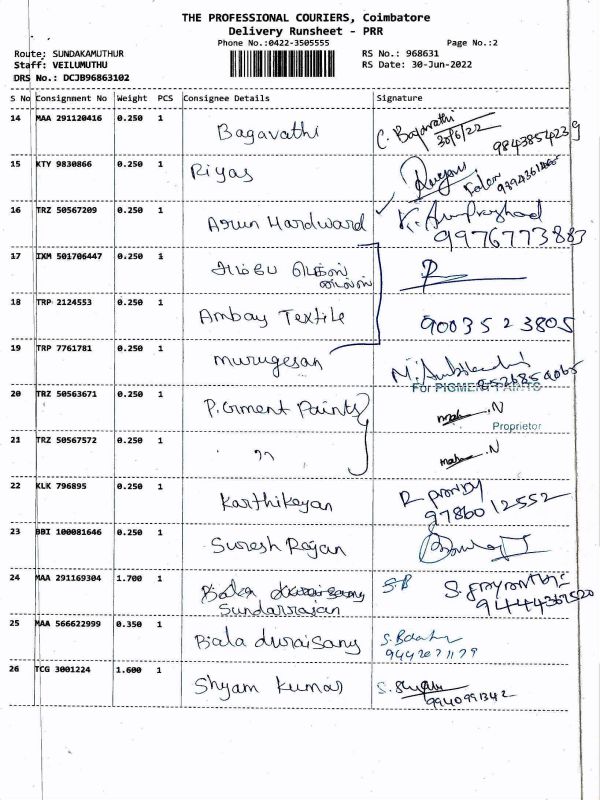 THE PROFESSIONAL COURIERS, Coimbatore
Delivery Runsheet - PRR
Phone No.:0422-3505555
Page No.:2
Route: SUNDAKAMUTHUR
RS No.: 968631
Staff: VEILUMUTHU
RS Date: 30-Jun-2022
DRS No.: DCJB96863102
S No Consignment No Weight PCS Consignee Details Signature
14 MAA 291120416 0.250 1 Bagavathi C. 30/6/22 9843854239
15 KTY 9830866 0.250 1 Riyas
16 TRZ 50567209 0.250 1 Arun Hardward K. 9976773883
17 IXM 501706447 0.250 1
18 TRP 2124553 0.250 1 Ambay Textile 9003523805
19 TRP 7761781 0.250 1 murugesan
For PIGMENT PAINTS
20 TRZ 50563671 0.250 1 Pigment Paints .N
Proprietor
21 TRZ 50567572 0.250 1 " .N
22 KLK 796895 0.250 1 Karthikeyan 9786012552
23 BBI 100081646 0.250 1 Suresh Rajan
24 MAA 291169304 1.700 1 Bala S.B
Sundarrajan
25 MAA 566622999 0.350 1 Bala duraisang
26 TCG 3001224 1.600 1 Shyam Kumar S. Shyam
9940991342